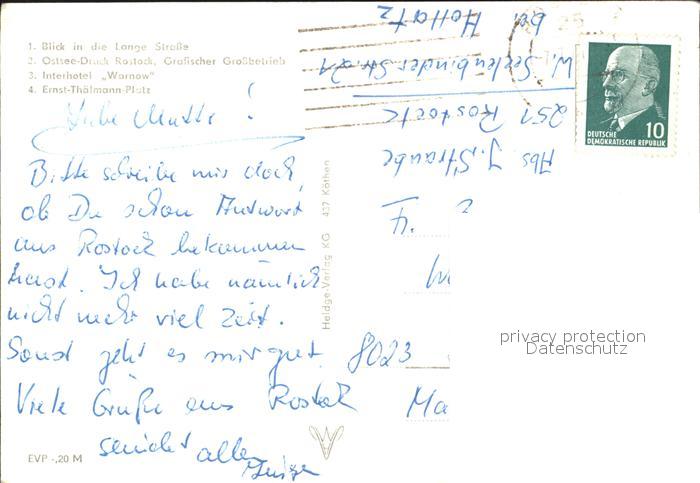 1. Blick in die Lange Straße
2. Ostsee-Druck Rostock, Grafischer Großbetrieb
3. Interhotel „Warnow“
4. Ernst-Thälmann-Platz
Liebe Mutti!
Bitte schreibe mir doch,
ob Du schon Antwort
aus Rostock bekommen
hast. Ich habe nämlich
nicht mehr viel Zeit.
Sonst geht es mir gut.
Viele Grüße aus Rostock
sendet allen
EVP -,20 M
Heldge-Verlag KG 437 Köthen
Abs J. Straube
251 Rostock
W. Seelenbinder Str. 21
bei Hollatz
8023
Ma
DEUTSCHE
DEMOKRATISCHE REPUBLIK
10
privacy protection
Datenschutz